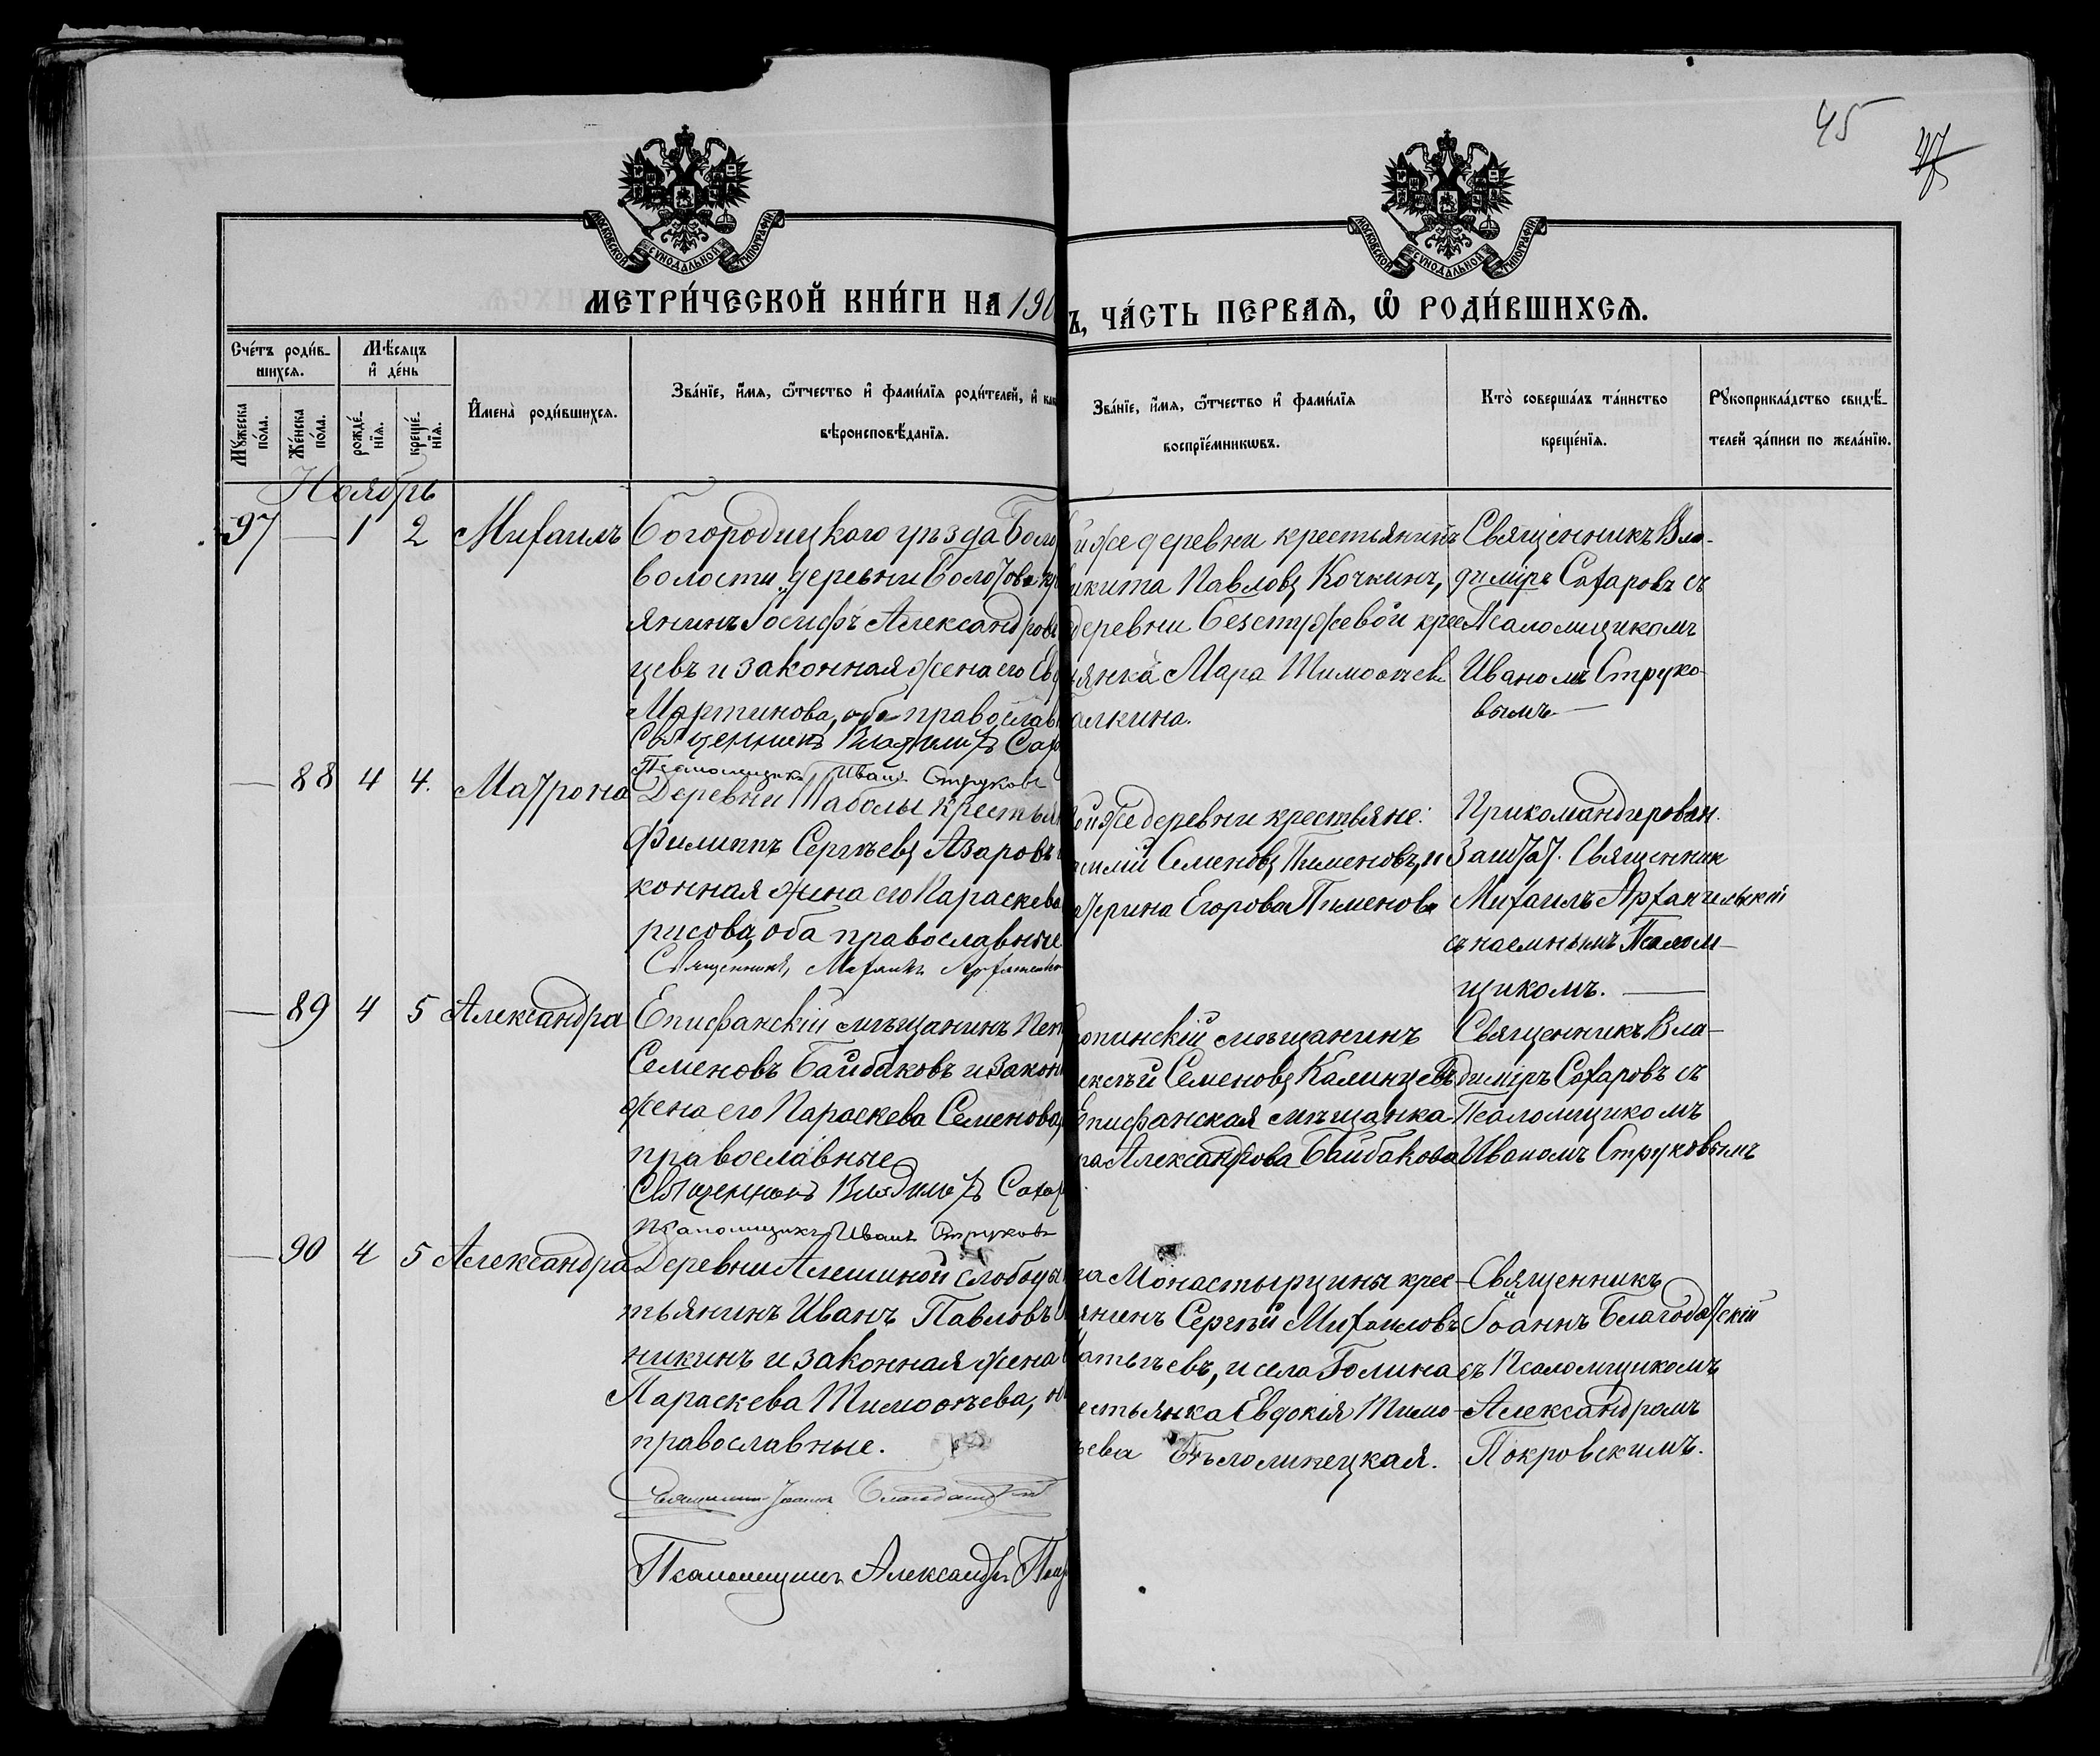 45
47
МОСКОВСКОЙ СУНОДАЛЬНОЙ ТИПОГРАФІИ
МОСКОВСКОЙ СУНОДАЛЬНОЙ ТИПОГРАФІИ
МЕТРИ́ЧЕСКОЙ КНИ́ГИ НА 190
Ъ, ЧА́СТЬ ПЕРВАѦ, Ѿ РОДИ́ВШИХСѦ.
Сче́тъ роди́в-
шихсѧ.
Мѣ́сяцъ
и҆ де́нь
Мꙋ́жеска по́ла.
Же́нска по́ла.
рожде́-
нїѧ.
креще́-
нїѧ.
И҆мена̀ роди́вшихсѧ.
Зва́нїе, и҆́мѧ, ѻ҆́тчество и҆ фами́лїѧ роди́телей, и҆
вѣроисповѣ́данїѧ.
Зва́нїе, и҆́мѧ, ѻ҆́тчество и҆ фами́лїѧ
воспрїе́мникѡвъ.
Кто̀ соверша́лъ та́инство
креще́нїѧ.
Рꙋкоприкла́дство свидѣ́-
телей за́писи по жела́нїю.
Ноябрь
97 — 1 2 Михаилъ
Богородицкаго уѣзда Бого
волости, деревни Болотовк кре
янинъ Іосифъ Александровъ
цевъ и законная жена его Евд
Мартинова, оба православ
Священникъ Владиміръ Саха
Псаломщикъ Иванъ Струковъ
й же деревни крестьянинъ
икита Павловъ Кочкинъ,
деревни Безстужевой крес
янка Мара Тимоѳеев
алкина.
Священникъ Вла-
диміръ Сахаровъ съ
Псаломщикомъ
Иваномъ Струко-
вымъ —
— 88 4 4. Матрона
Деревни Таболы крестья
Филиппъ Сергѣевъ Азаровъ
конная жена его Параскева
рисова, оба православные
Священникъ, Михаилъ Архангель
ой же деревни крестьяне:
силій Семеновъ Пименовъ, и
атерина Егорова Пименова
Прикомандирован.
Заштат. Священник
Михаилъ Архангельскій
съ наемнымъ Псалом-
щикомъ. —
— 89 4 5 Александра
Епифанскій мѣщанинъ Пет
Семеновъ Байбаковъ и закон
жена его Параскева Семенова,
православные
Священникъ Владиміръ Сахар
Псаломщикъ Иванъ Струковъ
опинскій мѣщанинъ
ексѣй Семеновъ Калинцевъ
Епифанская мѣщанка
ра Александрова Байбакова
Священникъ Вла-
диміръ Сахаровъ съ
Псаломщикомъ
Иваномъ Струковымъ
— 90 4 5 Александра
Деревни Алешиной слободы
тьянинъ Иванъ Павловъ
никинъ и законная жена
Параскева Тимоѳѣева, об
православные.
Священникъ Іоаннъ Благодатскій
Псаломщикъ Александръ Пок
ла Монастырщины крес-
янинъ Сергѣй Михаиловъ
атьѣевъ, и села Голина
естьянка Евдокія Тимо-
ѣева Бѣлолипецкая.
Священникъ
Іоаннъ Благодатскій
съ Псаломщикомъ
Александромъ
Покровскимъ.